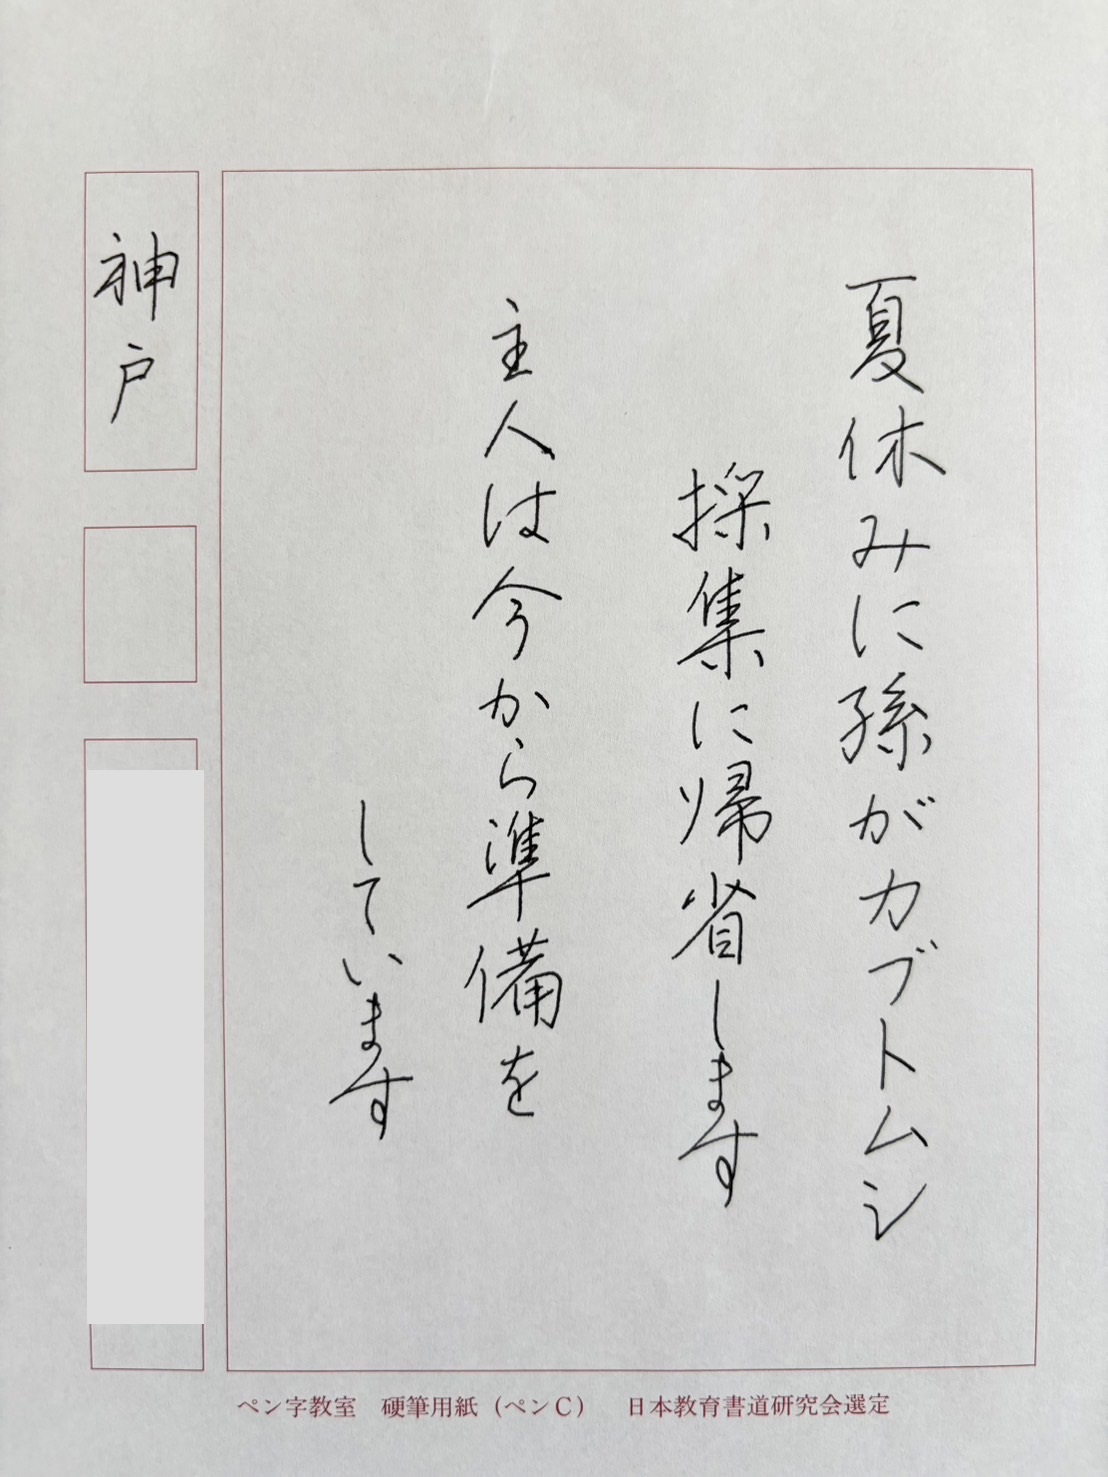 夏休みに孫がカブトムシ
採集に帰省します
主人は今から準備を
しています
神戸
ペン字教室 硬筆用紙（ペンC） 日本教育書道研究会選定